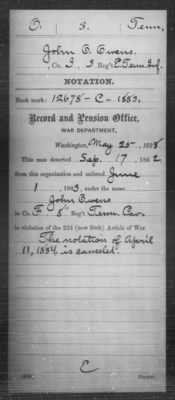 O. 3. Tenn.
John O. Owens.
Co. I, 3 Reg't E. Tenn. Inf.
NOTATION.
Book mark: 12678-C-1883.
Record and Pension Office,
WAR DEPARTMENT,
Washington, May 25, 1898
This man deserted Sep. 17, 1862
from this organization and enlisted June
1, 1863, under the name
John Owens
in Co. F 8" Reg't Tenn. Cav.
in violation of the 22d (now 50th) Article of War.
The notation of April
11, 1884, is canceled.
C
Copyist.